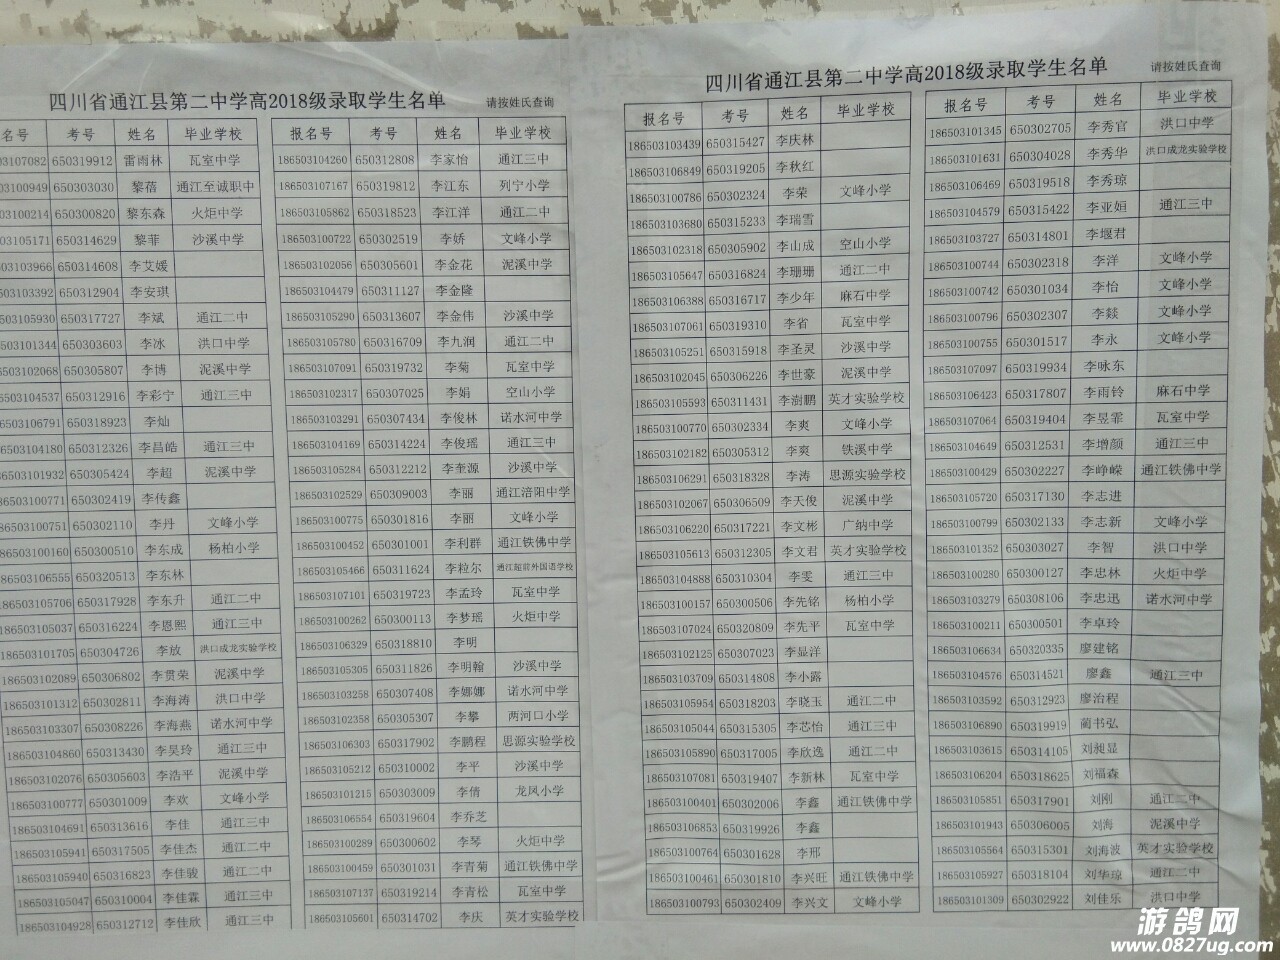 四川省通江县第二中学高2018级录取学生名单 请按姓氏查询
名号 考号 姓名 毕业学校
03107082 650319912 雷雨林 瓦室中学
03100949 650303030 黎蓓 通江至诚职中
03100214 650300820 黎东森 火炬中学
03105171 650314629 黎菲 沙溪中学
03103966 650314608 李艾媛
03103392 650312904 李安琪
03105930 650317727 李斌 通江二中
03101344 650303603 李冰 洪口中学
03102068 650305807 李博 泥溪中学
03104537 650312916 李彩宁 通江三中
03106791 650318923 李灿
03104180 650312326 李昌皓 通江三中
03101932 650305424 李超 泥溪中学
03100771 650302419 李传鑫
03100751 650302110 李丹 文峰小学
03100160 650300510 李东成 杨柏小学
503106555 650320513 李东林
503105706 650317928 李东升 通江二中
503105037 650316224 李恩熙 通江三中
6503101705 650304726 李放 洪口成龙实验学校
6503102089 650306802 李贯荣 泥溪中学
6503101312 650302811 李海涛 洪口中学
6503103307 650308226 李海燕 诺水河中学
186503104860 650313430 李昊玲 通江三中
186503102076 650305603 李浩平 泥溪中学
186503100777 650301009 李欢 文峰小学
186503104691 650313616 李佳 通江三中
186503105941 650317505 李佳杰 通江二中
186503105940 650316823 李佳骏 通江二中
186503105047 650310004 李佳霖 通江三中
186503104928 650312712 李佳欣 通江三中
报名号 考号 姓名 毕业学校
186503104260 650312808 李家怡 通江三中
186503107167 650319812 李江东 列宁小学
186503105862 650318523 李江洋 通江二中
186503100722 650302519 李娇 文峰小学
186503102056 650305601 李金花 泥溪中学
186503104479 650311127 李金隆
186503105290 650313607 李金伟 沙溪中学
186503105780 650316709 李九润 通江二中
186503107091 650319732 李菊 瓦室中学
186503102317 650307025 李娟 空山小学
186503103291 650307434 李俊林 诺水河中学
186503104169 650314224 李俊瑶 通江三中
186503105284 650312212 李奎源 沙溪中学
186503102529 650309003 李丽 通江涪阳中学
186503100775 650301816 李丽 文峰小学
186503100452 650301001 李利群 通江铁佛中学
186503105466 650311624 李粒尔 通江超前外国语学校
186503107101 650319723 李孟玲 瓦室中学
186503100262 650300113 李梦瑶 火炬中学
186503106329 650318810 李明
186503105305 650311826 李明翰 沙溪中学
186503103258 650307408 李娜娜 诺水河中学
186503102358 650305307 李攀 两河口小学
186503106303 650317902 李鹏程 思源实验学校
186503105212 650310002 李平 沙溪中学
186503101215 650303009 李倩 龙凤小学
186503106554 650319604 李乔芝
186503100289 650300602 李琴 火炬中学
186503100459 650301031 李青菊 通江铁佛中学
186503107137 650319214 李青松 瓦室中学
186503105601 650314702 李庆 英才实验学校
四川省通江县第二中学高2018级录取学生名单 请按姓氏查询
报名号 考号 姓名 毕业学校
186503103439 650315427 李庆林
186503106849 650319205 李秋红
186503100786 650302324 李荣 文峰小学
186503103680 650315233 李瑞雪
186503102318 650305902 李山成 空山小学
186503105647 650316824 李珊珊 通江二中
186503106388 650316717 李少年 麻石中学
186503107061 650319310 李省 瓦室中学
186503105251 650315918 李圣灵 沙溪中学
186503102045 650306226 李世豪 泥溪中学
186503105593 650311431 李澍鹏 英才实验学校
186503100770 650302334 李爽 文峰小学
186503102182 650305312 李爽 铁溪中学
186503106291 650318328 李涛 思源实验学校
186503102067 650306509 李天俊 泥溪中学
186503106220 650317221 李文彬 广纳中学
186503105613 650312305 李文君 英才实验学校
186503104888 650310304 李雯 通江三中
186503100157 650300506 李先铭 杨柏小学
186503107024 650320809 李先平 瓦室中学
186503102125 650307023 李显洋
186503103709 650314808 李小露
186503105954 650318203 李晓玉 通江二中
186503105044 650315305 李芯怡 通江三中
186503105890 650317005 李欣逸 通江二中
186503107081 650319407 李新林 瓦室中学
186503100401 650302006 李鑫 通江铁佛中学
186503106853 650319926 李鑫
186503100764 650301628 李邢
186503100461 650301810 李兴旺 通江铁佛中学
186503100793 650302409 李兴文 文峰小学
报名号 考号 姓名 毕业学校
186503101345 650302705 李秀官 洪口中学
186503101631 650304028 李秀华 洪口成龙实验学校
186503106469 650319518 李秀琼
186503104579 650315422 李亚姮 通江三中
186503103727 650314801 李堰君
186503100744 650302318 李洋 文峰小学
186503100742 650301034 李怡 文峰小学
186503100796 650302307 李燚 文峰小学
186503100755 650301517 李永 文峰小学
186503107097 650319934 李咏东
186503106423 650317807 李雨铃 麻石中学
186503107064 650319404 李昱霏 瓦室中学
186503104649 650312531 李增颜 通江三中
186503100429 650302227 李峥嵘 通江铁佛中学
186503105720 650317130 李志进
186503100799 650302133 李志新 文峰小学
186503101352 650303027 李智 洪口中学
186503100280 650300127 李忠林 火炬中学
186503103279 650308106 李忠迅 诺水河中学
186503100211 650300501 李卓玲
186503106634 650320335 廖建铭
186503104576 650314521 廖鑫 通江三中
186503103592 650312923 廖治程
186503106890 650319919 蔺书弘
186503103615 650314105 刘昶显
186503106204 650318625 刘福森
186503105851 650317901 刘刚 通江二中
186503101943 650306005 刘海 泥溪中学
186503105564 650315301 刘海波 英才实验学校
186503105927 650318104 刘华琼 通江二中
186503101309 650302922 刘佳乐 洪口中学
游鸽网
www.0827ug.com